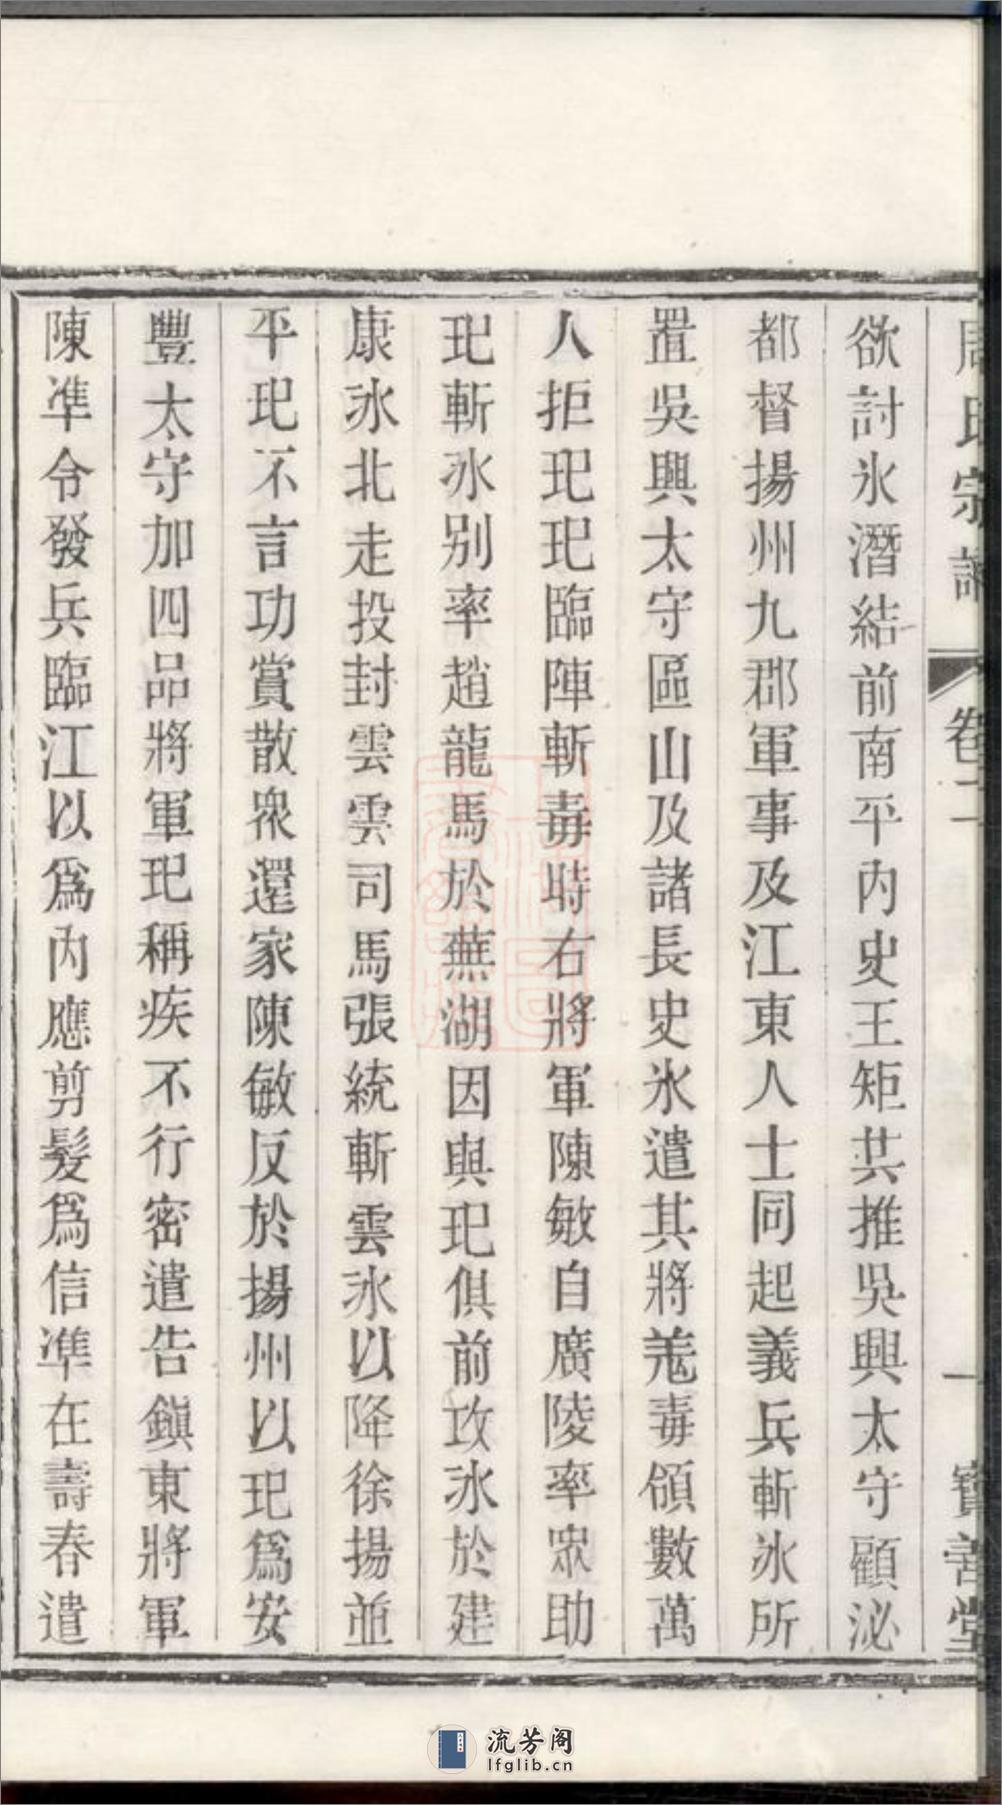 周氏宗譜 卷二 一 寶善堂
欲討氷潛結前南平內史王矩共推吳興太守顧泌
都督揚州九郡軍事及江東人士同起義兵斬氷所
置吳興太守區山及諸長史氷遣其將羗毒領數萬
人拒玘玘臨陣斬毒時右將軍陳敏自廣陵率眾助
玘斬氷別率趙龍馬於蕪湖因與玘俱前攻氷於建
康氷北走投封雲雲司馬張統斬雲氷以降徐揚並
平玘不言功賞散眾還家陳敏反於揚州以玘爲安
豐太守加四品將軍玘稱疾不行密遣告鎭東將軍
陳準令發兵臨江以爲內應剪髮爲信準在壽春遣
流芳阁
lfglib.cn